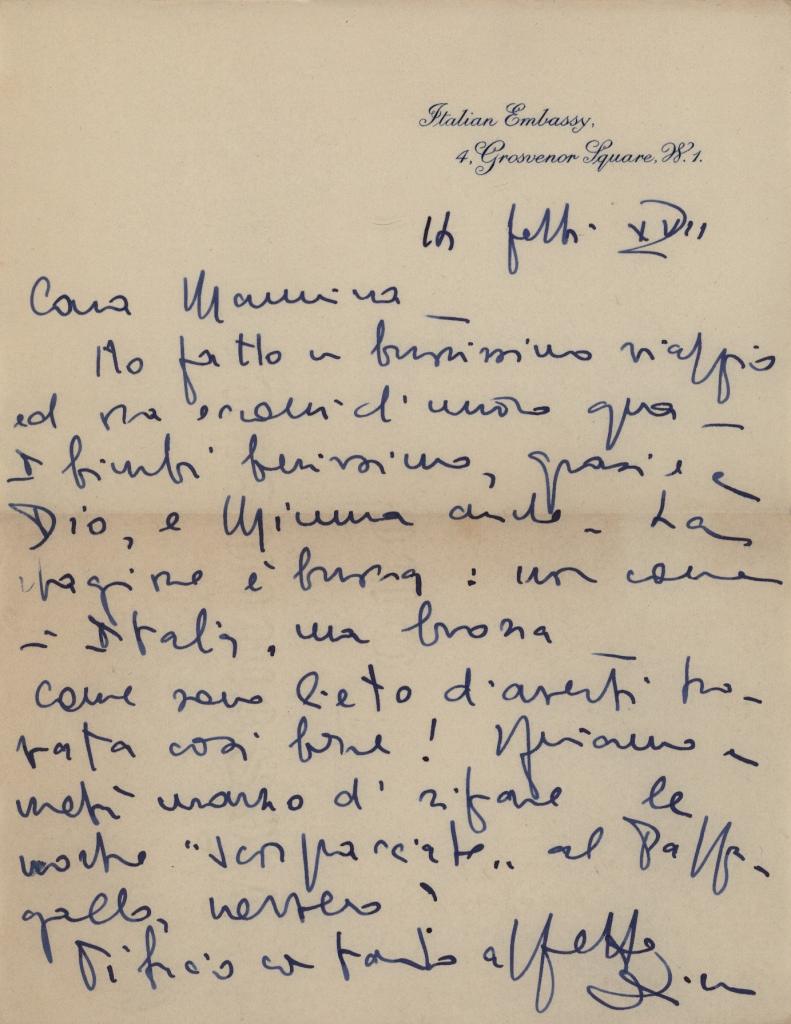 Italian Embassy,
4, Grosvenor Square, W. 1.
14 febb. XVII
Cara Mammina _
Ho fatto un buonissimo viaggio
ed ora eccomi di nuovo qua _
I bimbi benissimo, grazie a
Dio, e Mimma anche _ La
stagione è buona : non come
in Italia, ma buona _
Come sono lieto d'averti tro-
vata così bene ! Speriamo a
metà marzo di rifare le
nostre "scorpacciate" al Pappa-
gallo, nevvero ?
Ti bacio con tanto affetto